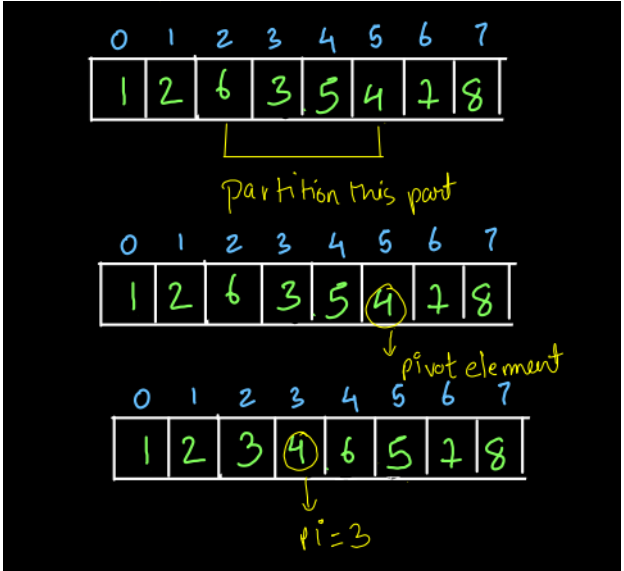 0 1 2 3 4 5 6 7
1 2 6 3 5 4 7 8
partition this part
0 1 2 3 4 5 6 7
1 2 6 3 5 4 7 8
pivot element
0 1 2 3 4 5 6 7
1 2 3 4 6 5 7 8
pi=3